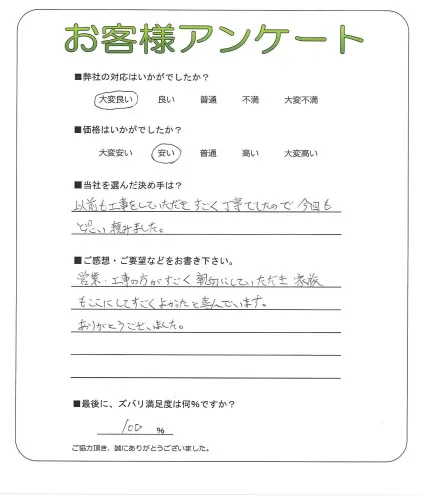 お客様アンケート
■弊社の対応はいかがでしたか？
大変良い 良い 普通 不満 大変不満
■価格はいかがでしたか？
大変安い 安い 普通 高い 大変高い
■当社を選んだ決め手は？
以前も工事をしていただき すごく丁寧でしたので 今回も
と思い 頼みました。
■ご感想・ご要望などをお書き下さい。
営業・工事の方がすごく 親切にしていただき 家族
もここにしてすごくよかったと喜んでいます。
ありがとうございました。
■最後に、ズバリ満足度は何%ですか？
100 %
ご協力頂き、誠にありがとうございました。